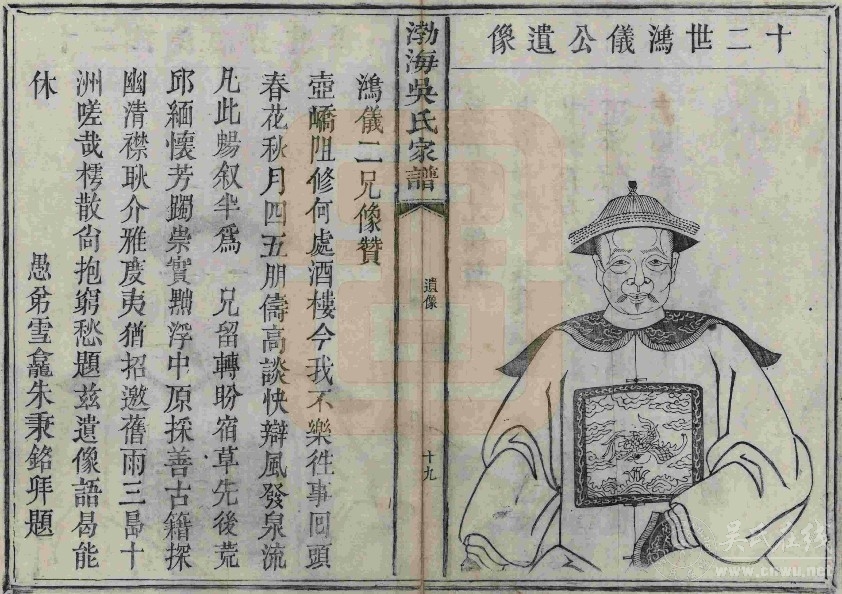 十二世鴻儀公遺像
渤海吳氏家譜
遺像
十九
鴻儀二兄像贊
壺嶠阻修何處酒樓今我不樂徃事回頭
春花秋月四五朋儔高談快辯風發泉流
凡此觴叙半爲 兄留轉盼宿草先後荒
邱緬懷芳躅崇實黜浮中原採善古籍探
幽清襟耿介雅度夷猶招邀舊雨三島十
洲嗟哉樗散尙抱窮愁題茲遺像語曷能
休
愚弟雪龕朱秉銘拜題
吴氏在线
www.cnwu.net